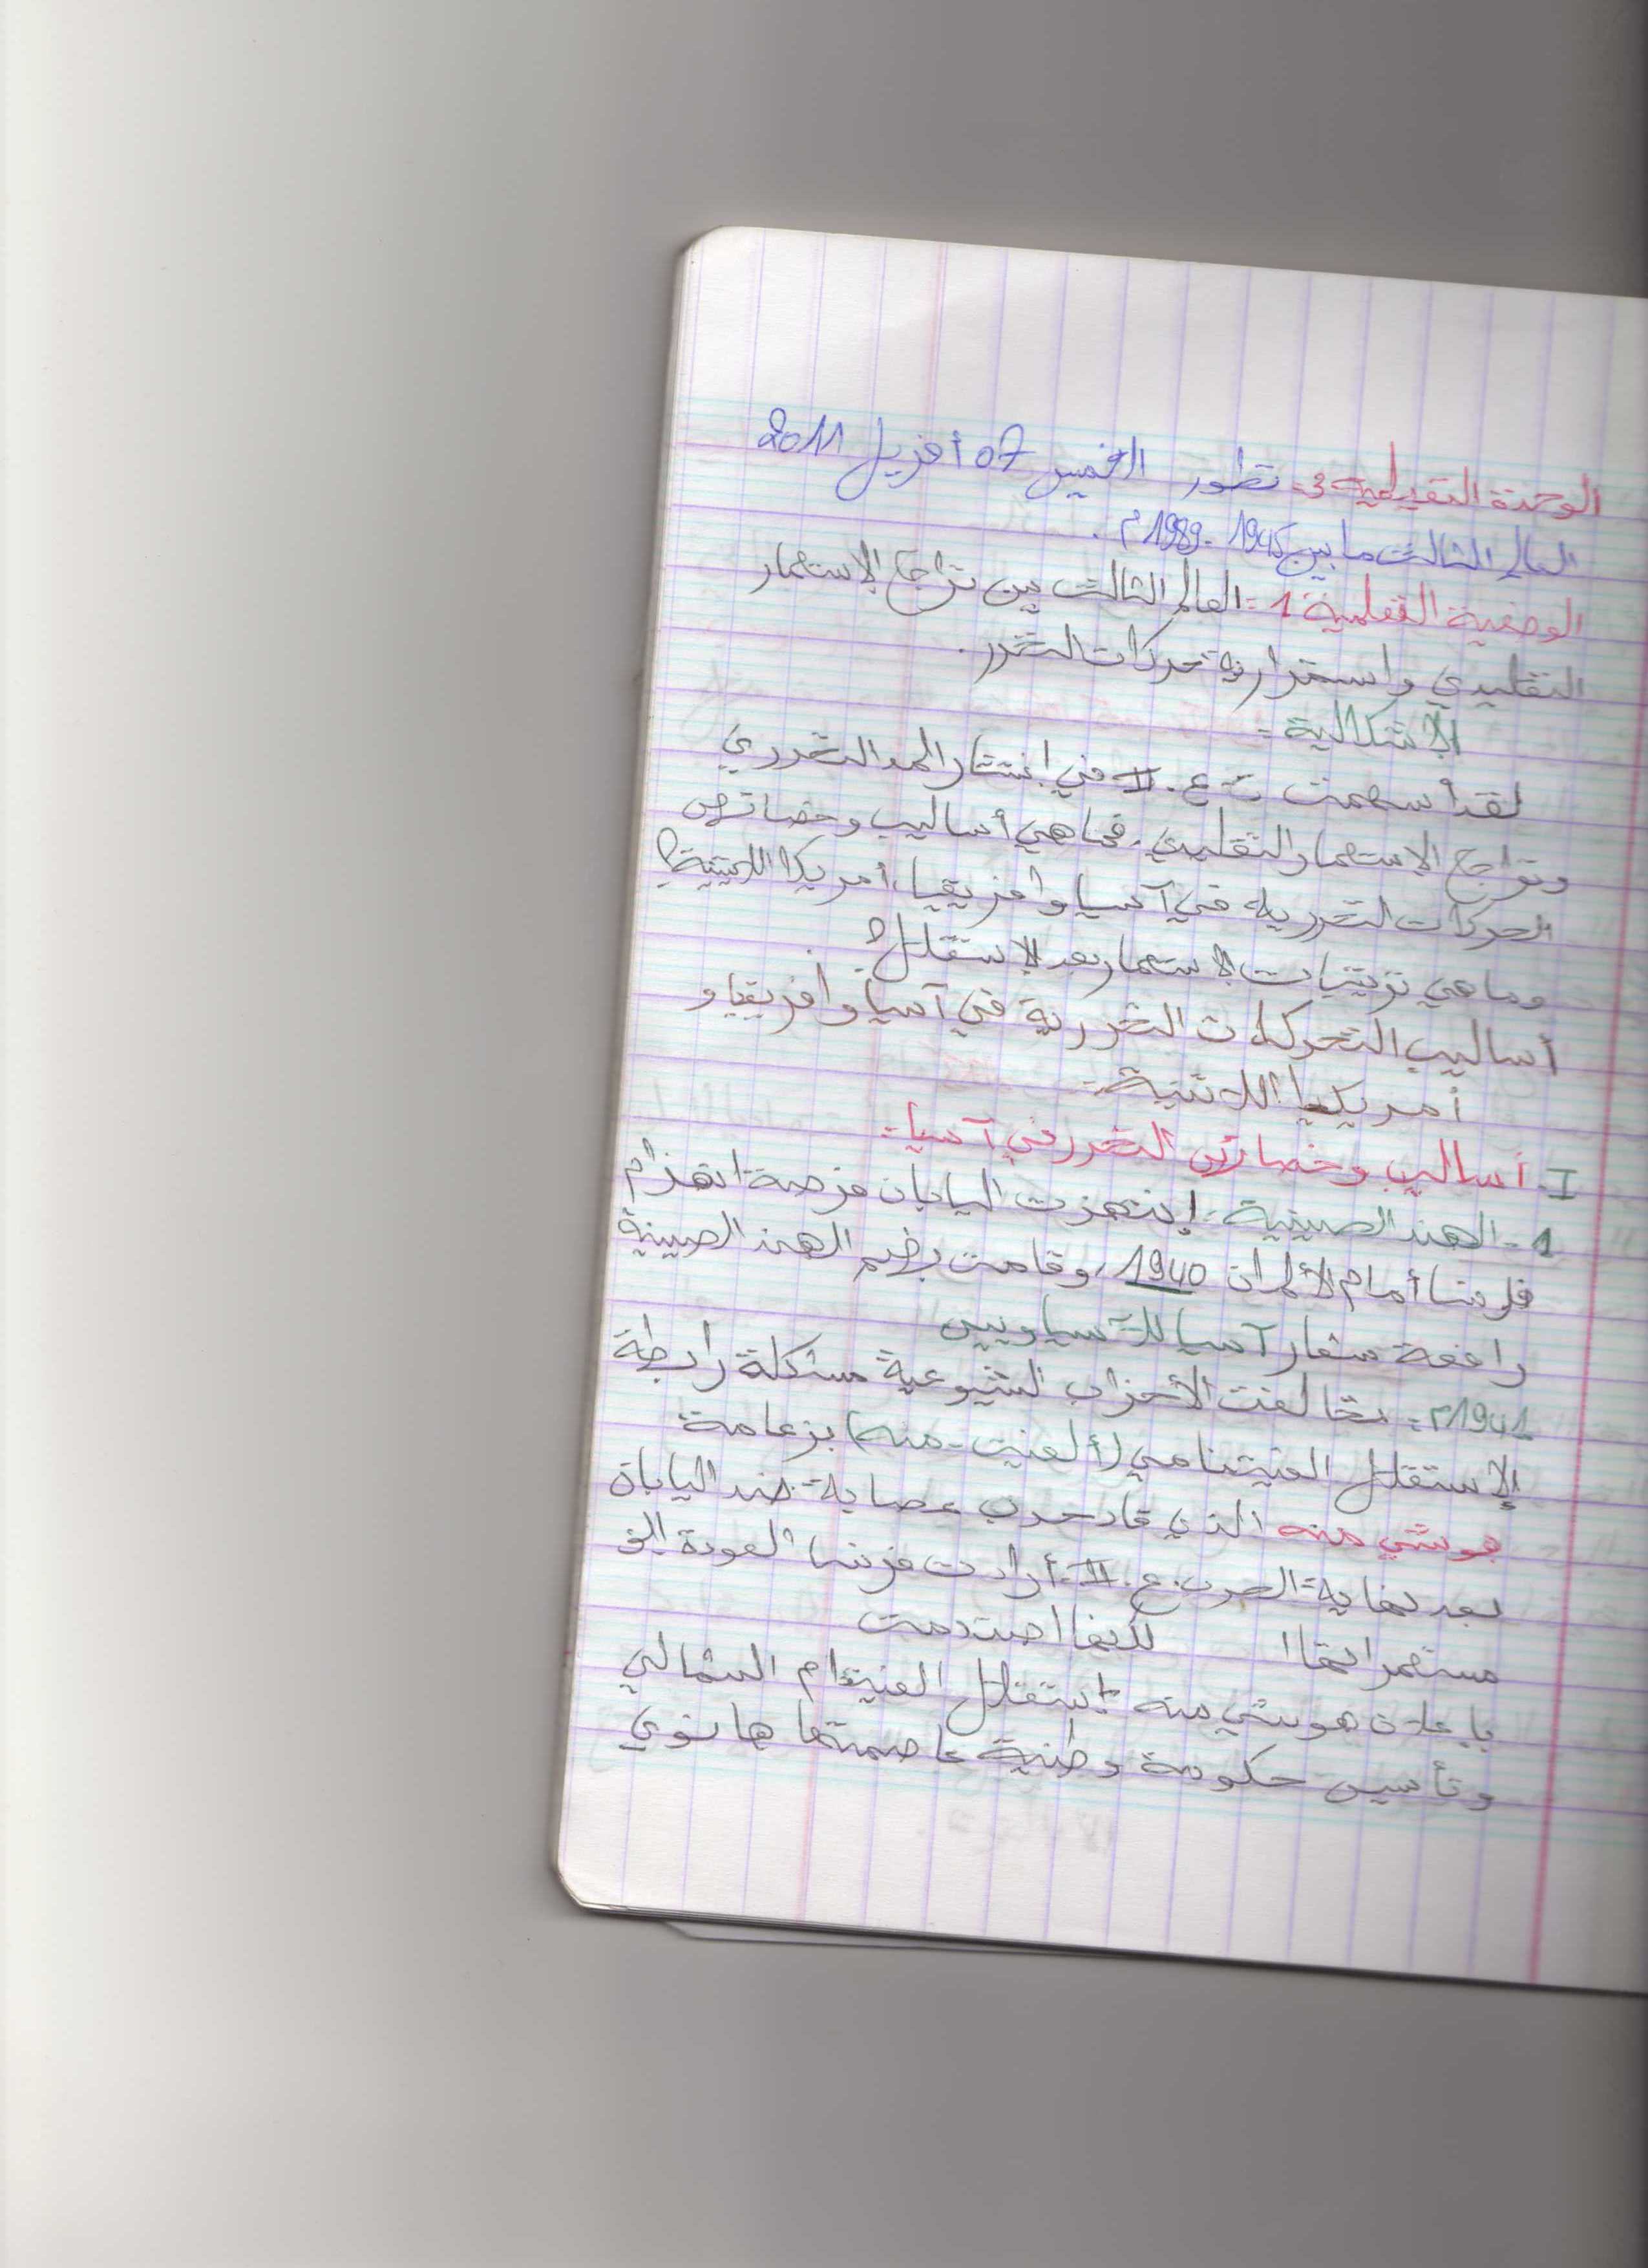 الوحدة التعليمية 3: تطور الخميس 07 أفريل 2011
العالم الثالث ما بين 1945 - 1989 م .
الوضعية التعلمية 1: العالم الثالث بين تراجع الإستعمار
التقليدي واستمرارية حركات التحرر .
الإشكالية :
لقد أسهمت ح ع . II في انتشار المد التحرري
وتراجع الاستعمار التقليدي . فما هي أساليب وخصائص
الحركات التحررية في آسيا وافريقيا، أمريكا اللاتينية؟
وما هي ترتيبات الاستعمار بعد الإستقلال؟ .
أساليب التحركات التحررية في آسيا وافريقيا و
أمريكيا اللاتنية :
I - أساليب وخصائص التحرر في آسيا :
1 - الهند الصينية : إنتهزت اليابان فرصة انهزام
فرنسا أمام الألمان 1940، وقامت بضم الهند الصينية
رافعة شعار آسيا للآسياويين
1941 م : تحالفت الأحزاب الشيوعية مشكلة رابطة
الإستقلال الفيتنامي (ألفيت - منه) بزعامة
هوشي منه الذي قاد حرب عصابة ضد اليابان
بعد نهاية الحرب ع . II . أرادت فرنسا العودة إلى
مستعمراتها لكنها اصتدمت
بإعلان هوشي منه إستقلال الفيتنام الشمالي
وتأسيس حكومة وطنية عاصمتها هانوي